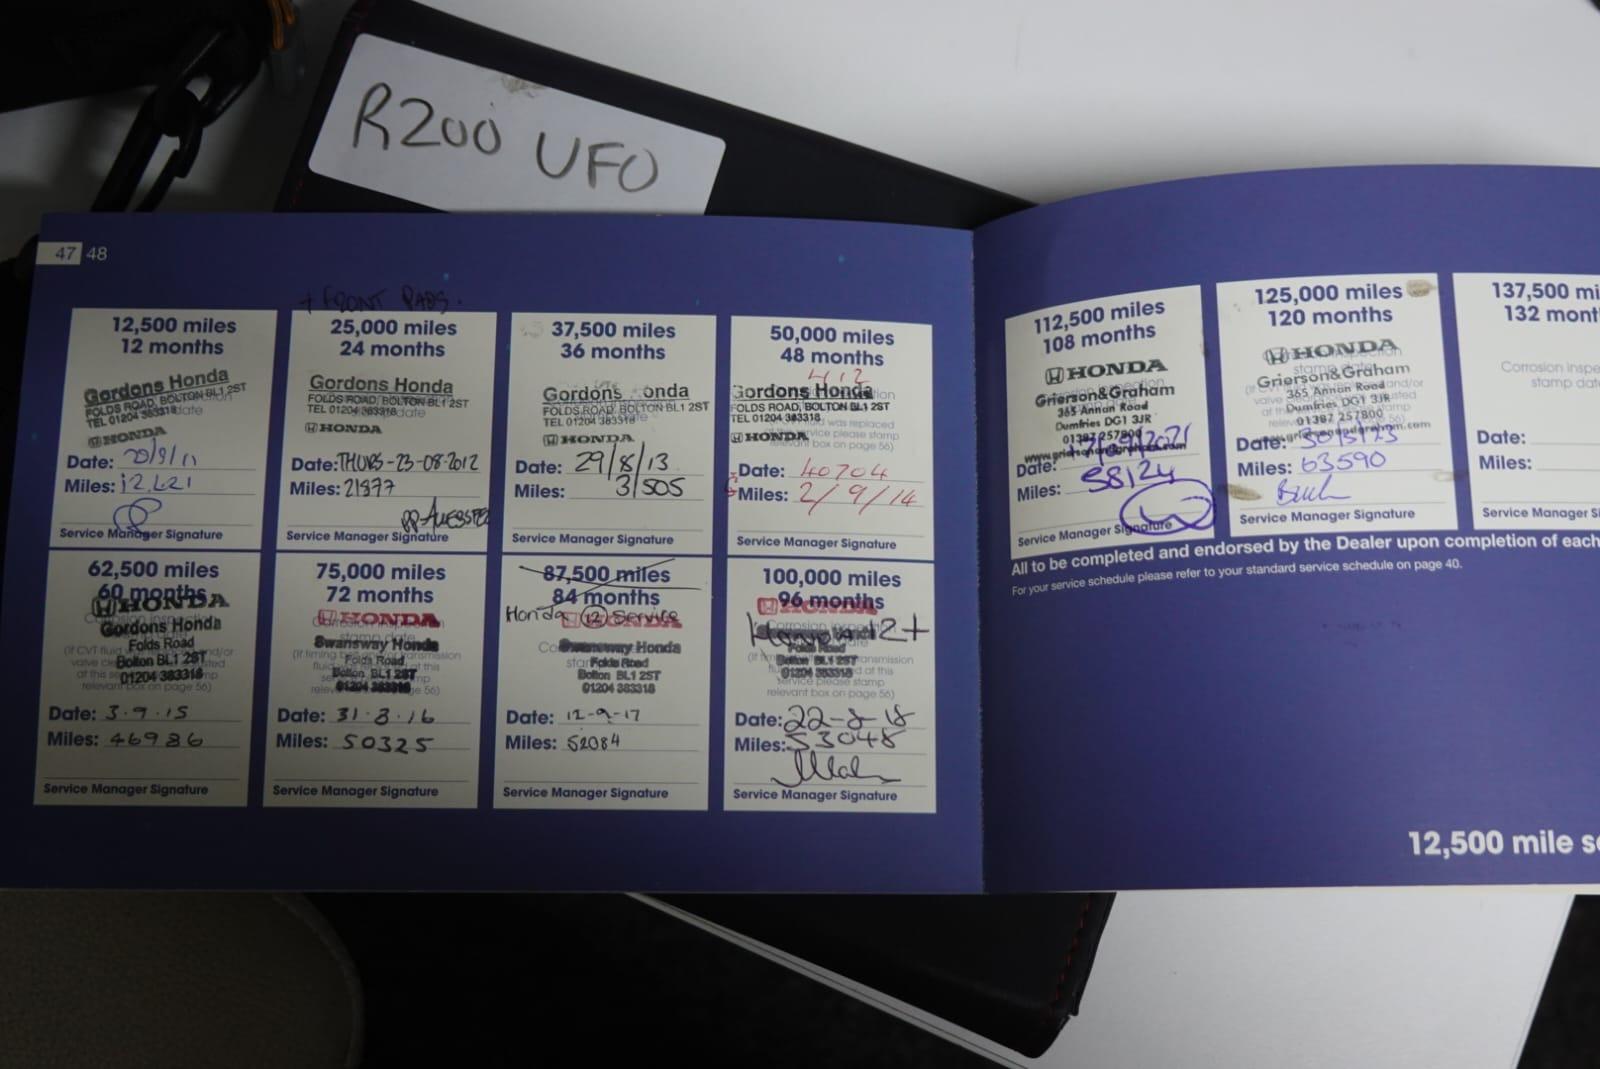 R200 UFO
47 48
+ FRONT PADS.
12,500 miles
12 months
Gordons Honda
FOLDS ROAD, BOLTON BL1 2ST
TEL 01204 383318
HONDA
Date: 20/9/11
Miles: 12,621
Service Manager Signature
25,000 miles
24 months
Gordons Honda
FOLDS ROAD, BOLTON BL1 2ST
TEL 01204 383318
HONDA
Date: THURS-23-08-2012
Miles: 21377
Service Manager Signature
37,500 miles
36 months
Gordons Honda
FOLDS ROAD, BOLTON BL1 2ST
TEL 01204 383318
HONDA
Date: 29/8/13
Miles: 31505
Service Manager Signature
50,000 miles
48 months
Gordons Honda
FOLDS ROAD, BOLTON BL1 2ST
TEL 01204 383318
HONDA
relevant box on page 56)
Date: 40704
Miles: 2/9/14
Service Manager Signature
62,500 miles
60 months
HONDA
Gordons Honda
Folds Road
Bolton BL1 2ST
01204 383318
relevant box on page 56)
Date: 3.9.15
Miles: 46986
Service Manager Signature
75,000 miles
72 months
HONDA
Swansway Honda
Folds Road
Bolton BL1 2ST
01204 383318
Date: 31.8.16
Miles: 50325
Service Manager Signature
87,500 miles
84 months
Honda 12 Service
Swansway Honda
Folds Road
Bolton BL1 2ST
01204 383318
Date: 12-9-17
Miles: 52084
Service Manager Signature
100,000 miles
96 months
HONDA
Honda 12+
Folds Road
Bolton BL1 2ST
01204 383318
relevant box on page 56)
Date: 22-8-18
Miles: 53048
Service Manager Signature
112,500 miles
108 months
HONDA
Grierson&Graham
365 Annan Road
Dumfries DG1 3JR
01387 257800
www.griersonandgraham.com
Date: /09/2021
Miles: 58124
Service Manager Signature
125,000 miles
120 months
HONDA
Grierson&Graham
365 Annan Road
Dumfries DG1 3JR
01387 257800
www.griersonandgraham.com
Date:
Miles: 63590
Service Manager Signature
137,500 mi
132 mont
Corrosion Inspe
stamp dat
Date:
Miles:
Service Manager S
All to be completed and endorsed by the Dealer upon completion of each
For your service schedule please refer to your standard service schedule on page 40.
12,500 mile se